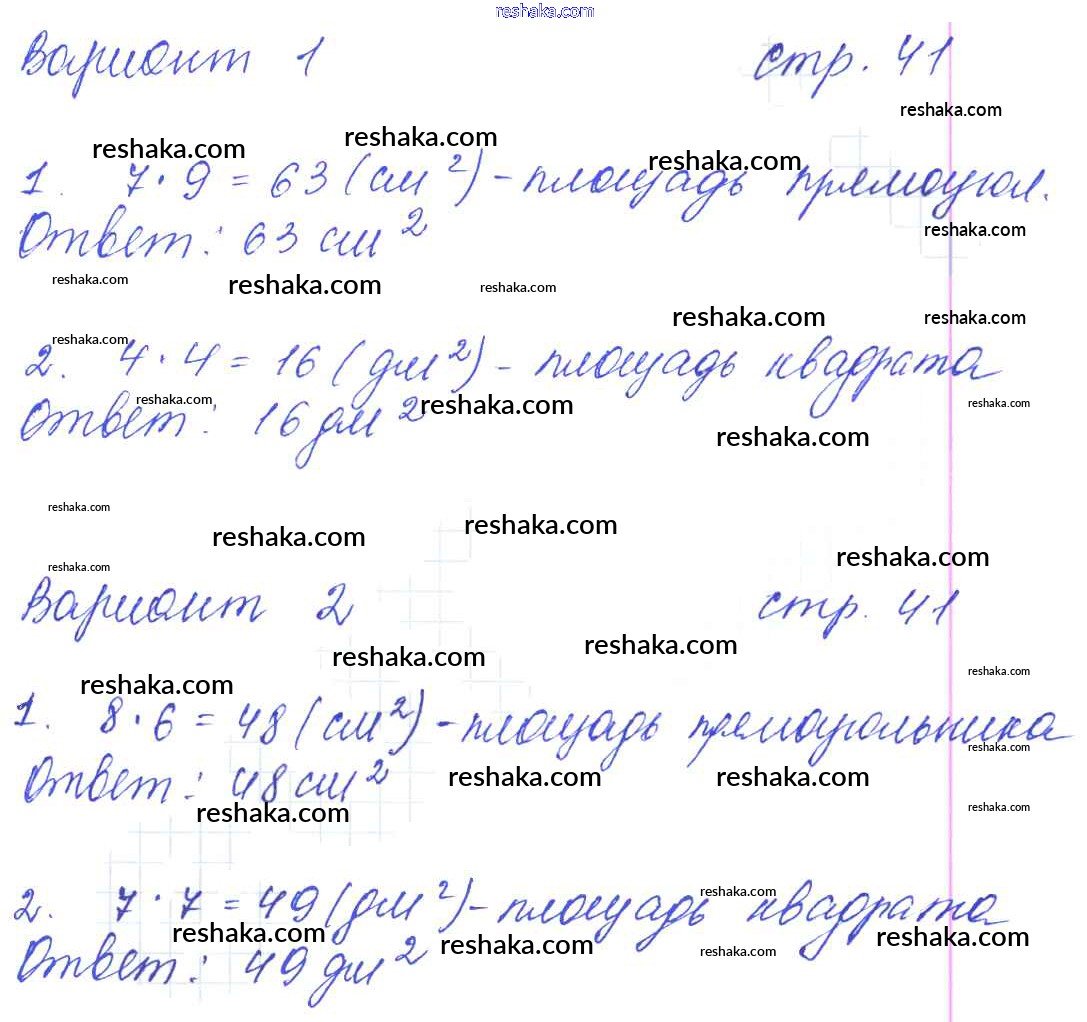 reshaka.com
Вариант 1 стр. 41
reshaka.com
reshaka.com reshaka.com reshaka.com
1. 7·9=63 (см²) - площадь прямоугол.
Ответ: 63 см²
reshaka.com
reshaka.com reshaka.com reshaka.com
reshaka.com reshaka.com
reshaka.com
2. 4·4=16 (дм²) - площадь квадрата
reshaka.com reshaka.com reshaka.com
Ответ: 16 дм²
reshaka.com
reshaka.com
reshaka.com reshaka.com
reshaka.com reshaka.com
Вариант 2 стр. 41
reshaka.com reshaka.com
reshaka.com reshaka.com
1. 8·6=48 (см²) - площадь прямоугольника
reshaka.com
Ответ: 48 см²
reshaka.com reshaka.com
reshaka.com reshaka.com
2. 7·7=49 (дм²) - площадь квадрата
reshaka.com
reshaka.com reshaka.com reshaka.com
reshaka.com
Ответ: 49 дм²